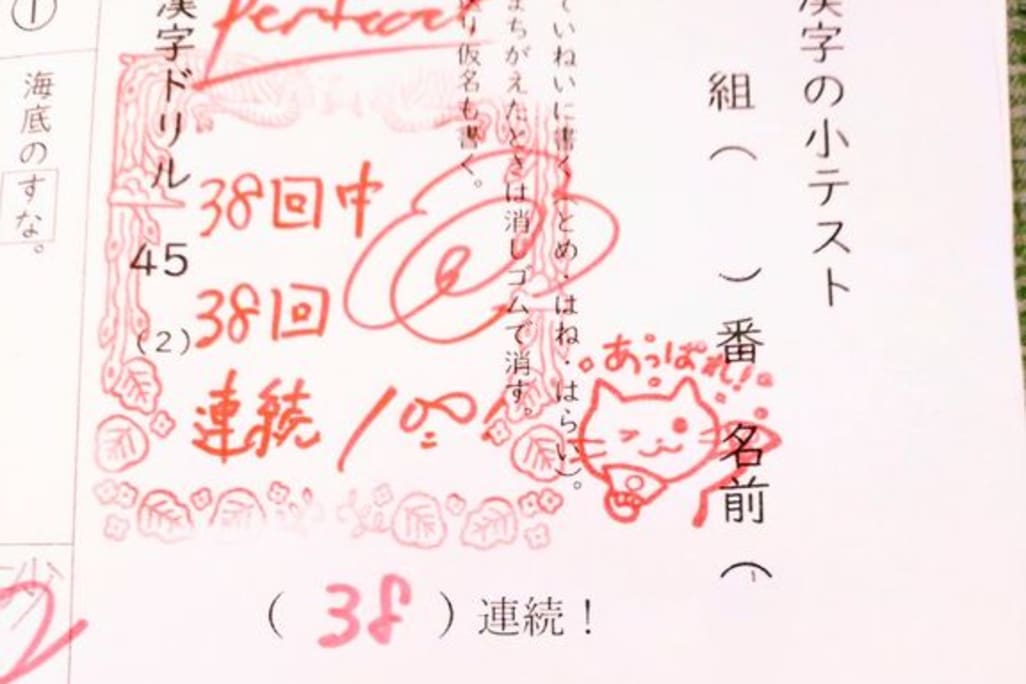 漢字の小テスト
組（　　　）番 名前（
あっぱれ！
ていねいに書く（とめ・はね・はらい）。
まちがえたときは消しゴムで消す。
り仮名も書く。
Perfect
38回中
38回
連続100！
漢字ドリル 45 (2)
（38）連続！
①
海底のすな。